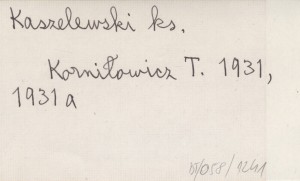 Kaszelewski ks.
Korniłowicz T. 1931,
1931a